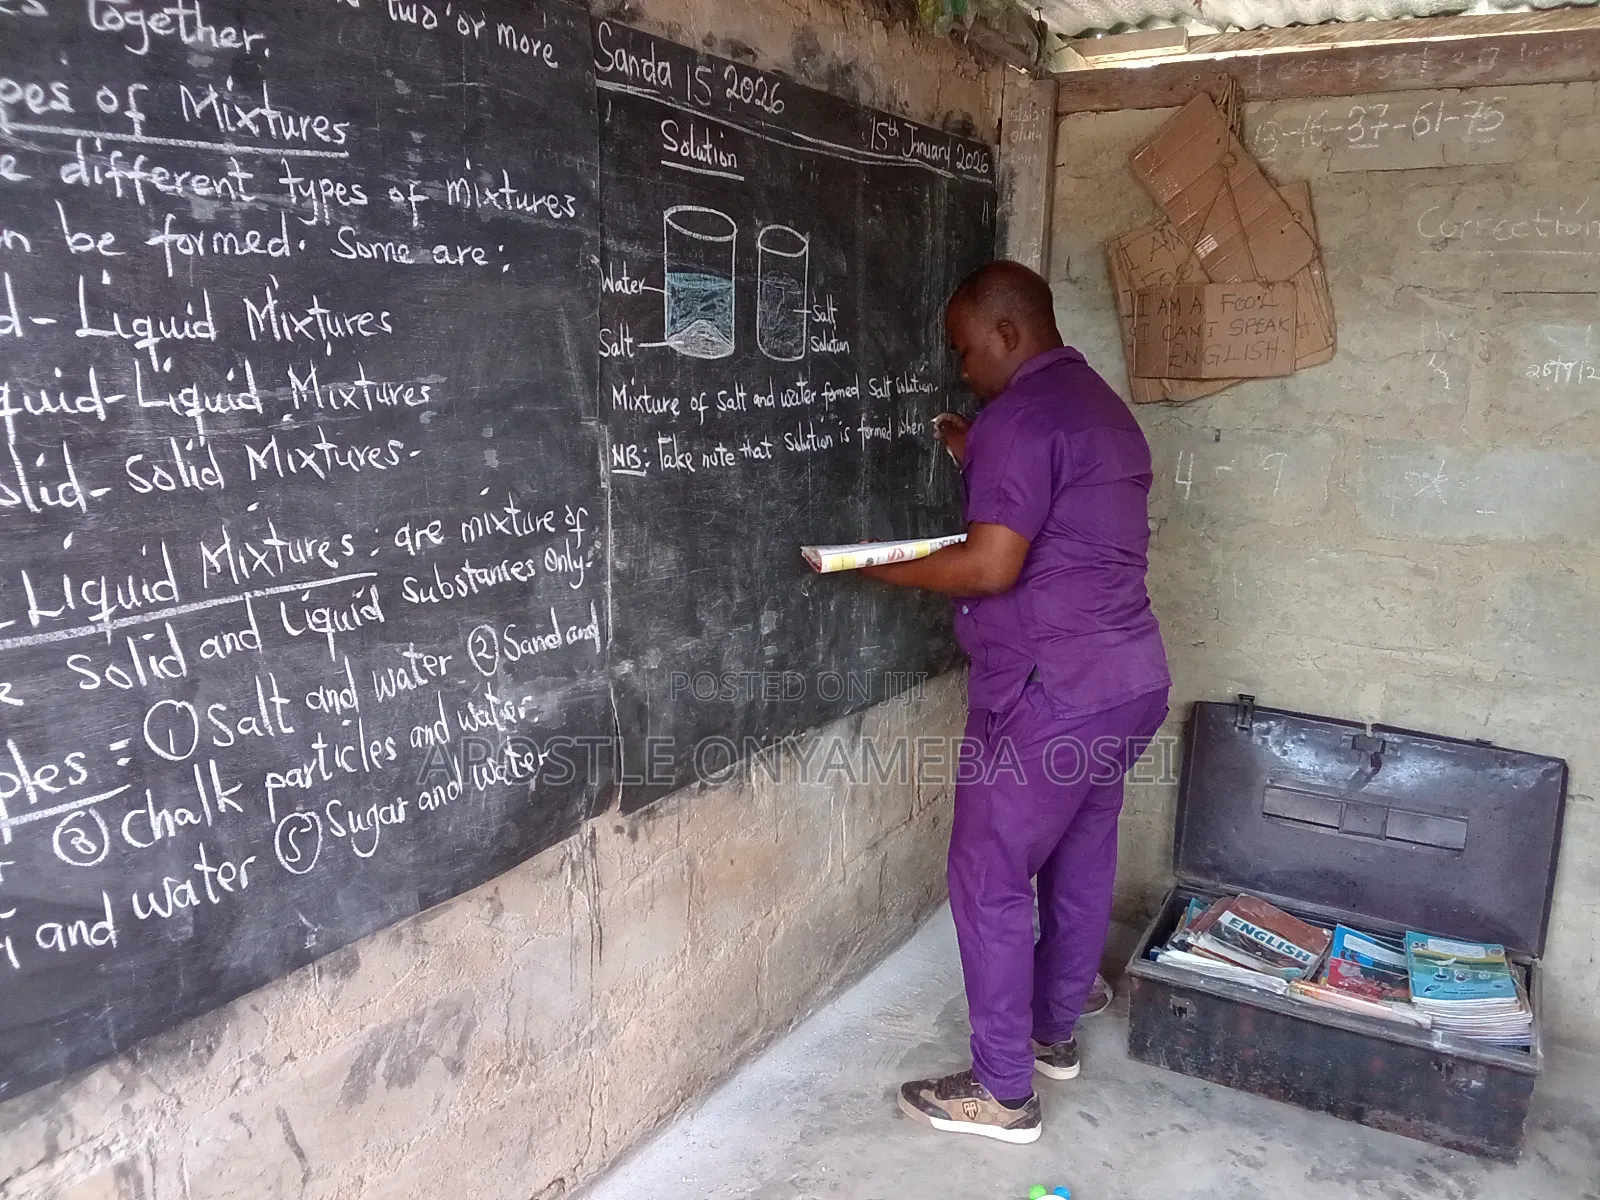 together.
two or more
pes of Mixtures
e different types of mixtures
n be formed. Some are:
d-Liquid Mixtures
quid-Liquid Mixtures
lid-Solid Mixtures.
Liquid Mixtures: are mixture of
Solid and Liquid substances Only-
ples = ① Salt and water ② Sand and
③ Chalk particles and water.
and water ⑤ Sugar and water
Sanda 15 2026
15th January 2026
Solution
Water
Salt
Salt
Solution
Mixture of Salt and water formed Salt Solution.
NB: Take note that Solution is formed when
13-16-37-61-75
Correction
I AM A FOOL.
I CAN'T SPEAK
ENGLISH.
4 - 9
ENGLISH
POSTED ON JIJI
APOSTLE ONYAMEBA OSEI